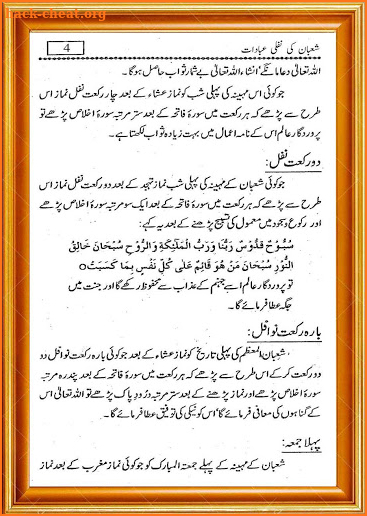 hack-cheat.org
شعبان کی نفلی عبادات
4
اللہ تعالیٰ دعا مانگے، انشاء اللہ تعالیٰ بے شمار ثواب حاصل ہوگا۔
جو کوئی اس مہینہ کی پہلی شب کو نماز عشاء کے بعد چار رکعت نفل نماز اس
طرح سے پڑھے کہ ہر رکعت میں سورۃ فاتحہ کے بعد ستر مرتبہ سورۃ اخلاص پڑھے تو
پروردگار عالم اس کے نامہ اعمال میں بہت زیادہ ثواب لکھتا ہے۔
دو رکعت نفل:
جو کوئی شعبان کے مہینہ کی پہلی شب نماز تہجد کے بعد دو رکعت نفل نماز اس
طرح سے پڑھے کہ ہر رکعت میں سورۃ فاتحہ کے بعد ایک سو مرتبہ سورۃ اخلاص پڑھے
اور رکوع و سجود میں معمول کی تسبیح پڑھنے کے بعد یہ کہے:
سُبُّوْحٌ قُدُّوْسٌ رَبُّنَا وَرَبُّ الْمَلٰٓئِكَةِ وَالرُّوْحِ سُبْحَانَ خَالِقِ
النُّوْرِ سُبْحَانَ مَنْ هُوَ قَائِمٌ عَلٰى كُلِّ نَفْسٍ بِمَا كَسَبَتْ○
تو پروردگار عالم اسے جہنم کے عذاب سے محفوظ رکھے گا اور جنت میں
جگہ عطا فرمائے گا۔
بارہ رکعت نوافل:
شعبان المعظم کی پہلی تاریخ کو نماز عشاء کے بعد جو کوئی بارہ رکعت نوافل دو
دو رکعت کر کے اس طرح سے پڑھے کہ ہر رکعت میں سورۃ فاتحہ کے بعد پندرہ مرتبہ
سورۃ اخلاص پڑھے اور نماز پڑھنے کے بعد ستر مرتبہ درود پاک پڑھے تو اللہ تعالیٰ اس
کے گناہوں کی معافی فرمائے گا، اس کو نیکی کی توفیق عطا فرمائے گا۔
پہلا جمعہ:
شعبان کے مہینہ کے پہلے جمعۃ المبارک کو جو کوئی نماز مغرب کے بعد نماز